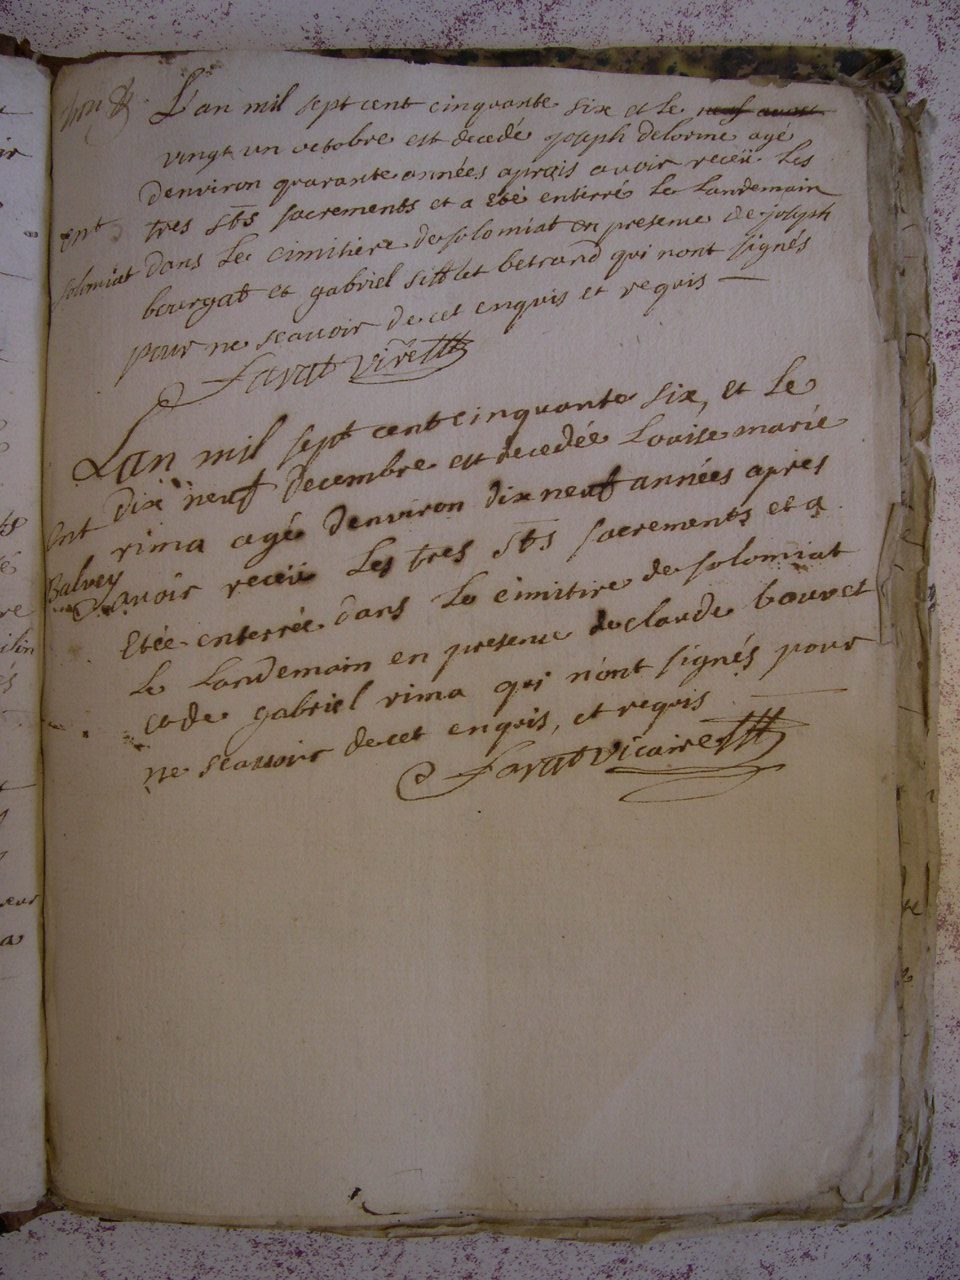 L'an mil sept cent cinquante six et le
vingt un octobre est decedé joseph delorme agé
denviron quarante années aprais avoir receü les
ent tres sts sacrements et a eté enterré le landemain
solomiat dans le cimitiere de solomiat en presence de joseph
bourgat et gabriel betrand qui nont signés
pour ne scavoir de cet enquis et requis
Savat
Lan mil sept cent cinquante six, et le
dix neuf decembre est decedée Louise marie
Ent rima agé denviron dix neuf années apries
Balvey avoir receü les tres sts sacrements et a
etée enterrée dans le cimitire de solomiat
le landemain en presence de claude bouvet
et de gabriel rima qui n'ont signés pour
ne scavoir de cet enquis, et requis
Savat vicaire